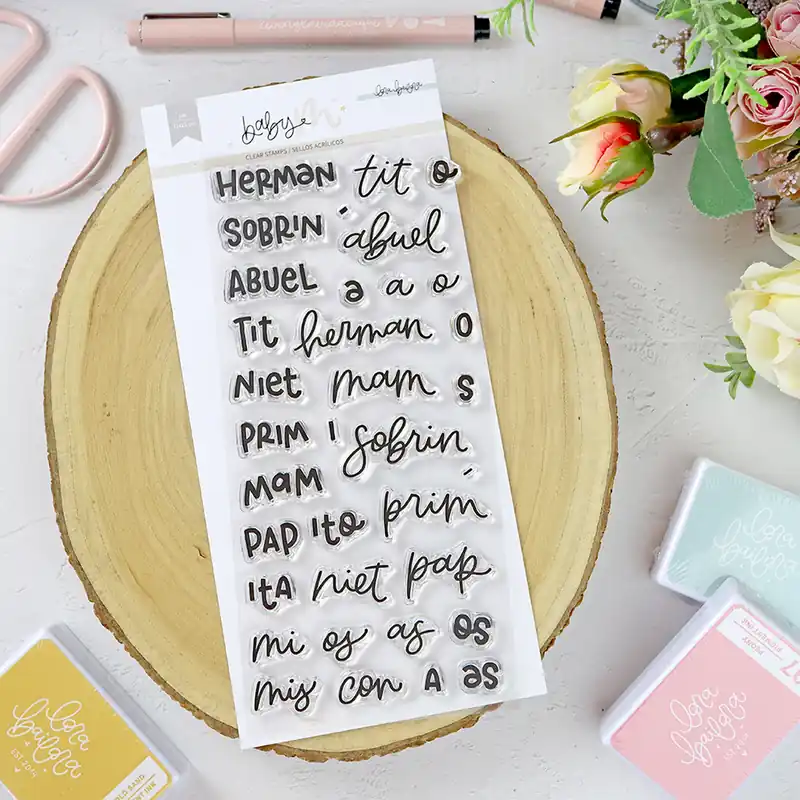 baby
lora bailora
CLEAR STAMPS / SELLOS ACRÍLICOS
HERMAN tit o
SOBRIN ´ abuel
ABUEL a a o
Tit herman o
NIET mam s
PRIM I sobrin
MAM ´
PAP ITO prim
ITA niet pap
mi os as os
mis con A as
lora bailora
lora bailora
EST 2014
OLD SAND
MENT INK
lora bailora
PEONY
PIGMENT INK